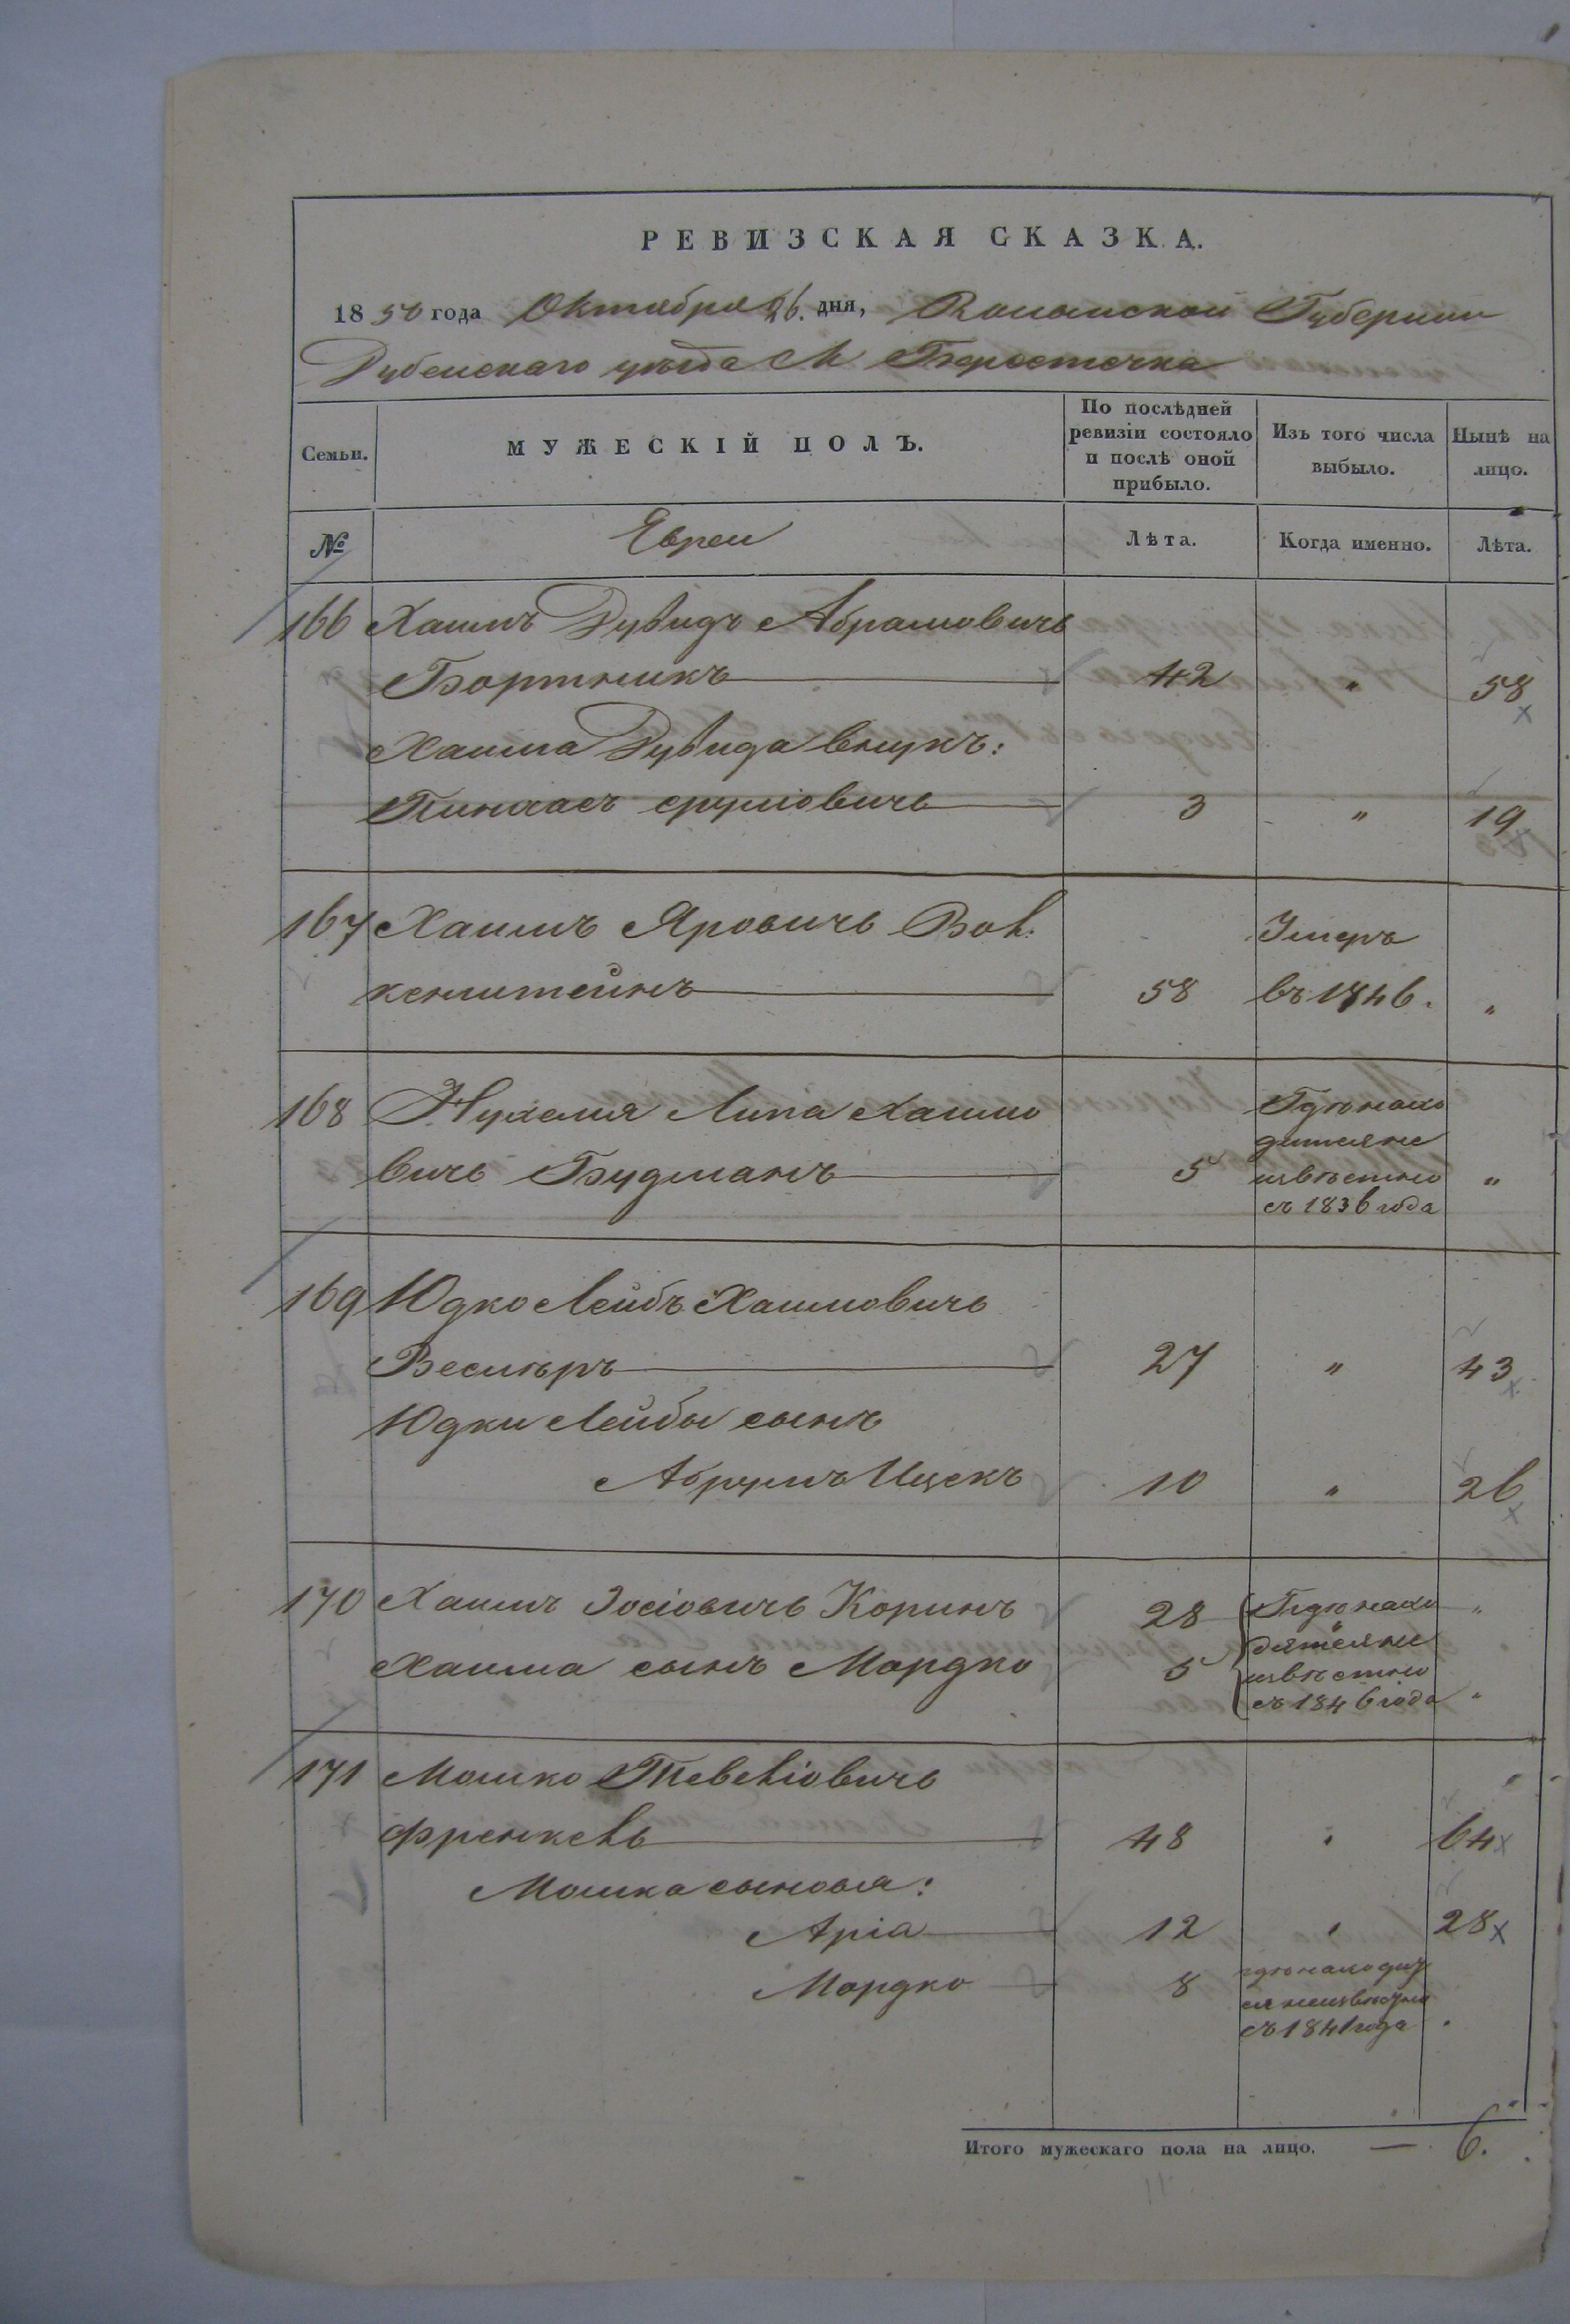 РЕВИЗСКАЯ СКАЗКА.
1850 года Октября 26. дня, Волынской Губернии
Дубенскаго уезда М Берестечка
Семьи.
МУЖЕСКІЙ ПОЛЪ.
По послѣдней ревизіи состояло и послѣ оной прибыло.
Изъ того числа выбыло.
Нынѣ на лицо.
№
Евреи
Лѣта.
Когда именно.
Лѣта.
166 Хаимъ Дувидъ Абрамовичъ
Бортникъ 42 " 58
Хаима Дувида внукъ:
Пинхасъ Сруліовичъ 3 " 19
167 Хаимъ Яровичъ Вол- Умеръ
кенштейнъ 58 въ 1846. "
168 Нухемія Липа Хаимо Где нахо
вичъ Будманъ 5 дитсяне
извѣстно "
съ 1836 года
169 Юдко Лейбъ Хаимовичъ
Веснеръ 27 " 43
Юдки Лейбы сынъ
Абрумъ Ицекъ 10 " 26
170 Хаимъ Іосіовичъ Коринъ 28 Где нахо "
дятсяне
Хаима сынъ Мордко 5 извѣстно
съ 1846 года "
171 Мошко Тевеліовичъ
Френкель 48 " 64
Мошка сыновья:
Арія 12 " 28
Мордко 8 где находит
ся неизвѣстно
съ 1841 года "
Итого мужескаго пола на лицо. — 6.